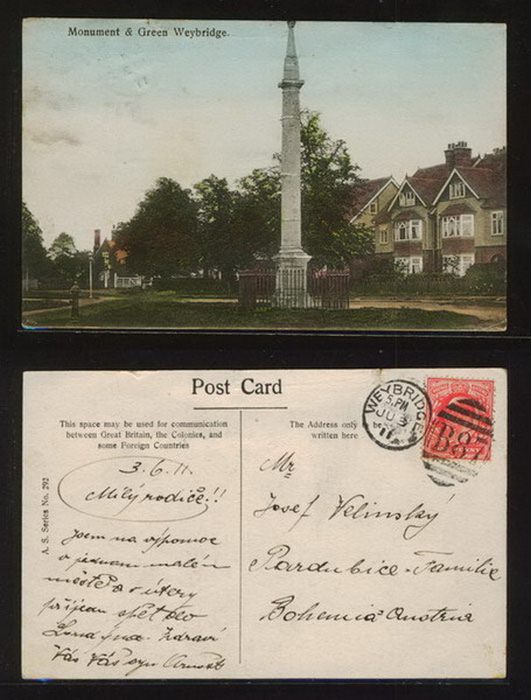 Monument & Green Weybridge.
Post Card
This space may be used for communication
between Great Britain, the Colonies, and
some Foreign Countries
The Address only
be
written here
WEYBRIDGE
5.PM
JU 3
11
B87
A. S. Series No. 292
3. 6. 11.
Milý rodiče!!
Jsem na výpomoc
v jednom malém
městě a v útery
přijedu zpět do
Zdraví
Vás Váš syn Arnošt
Mr
Josef Velinský
Pardubice - Familie
Bohemia Austria